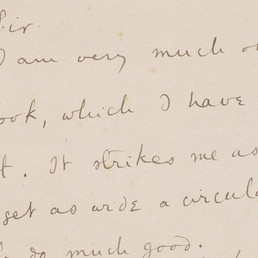 Sir.
I am very much o
ook, which I have
t. It strikes me as
get as wide a circula
do much good.